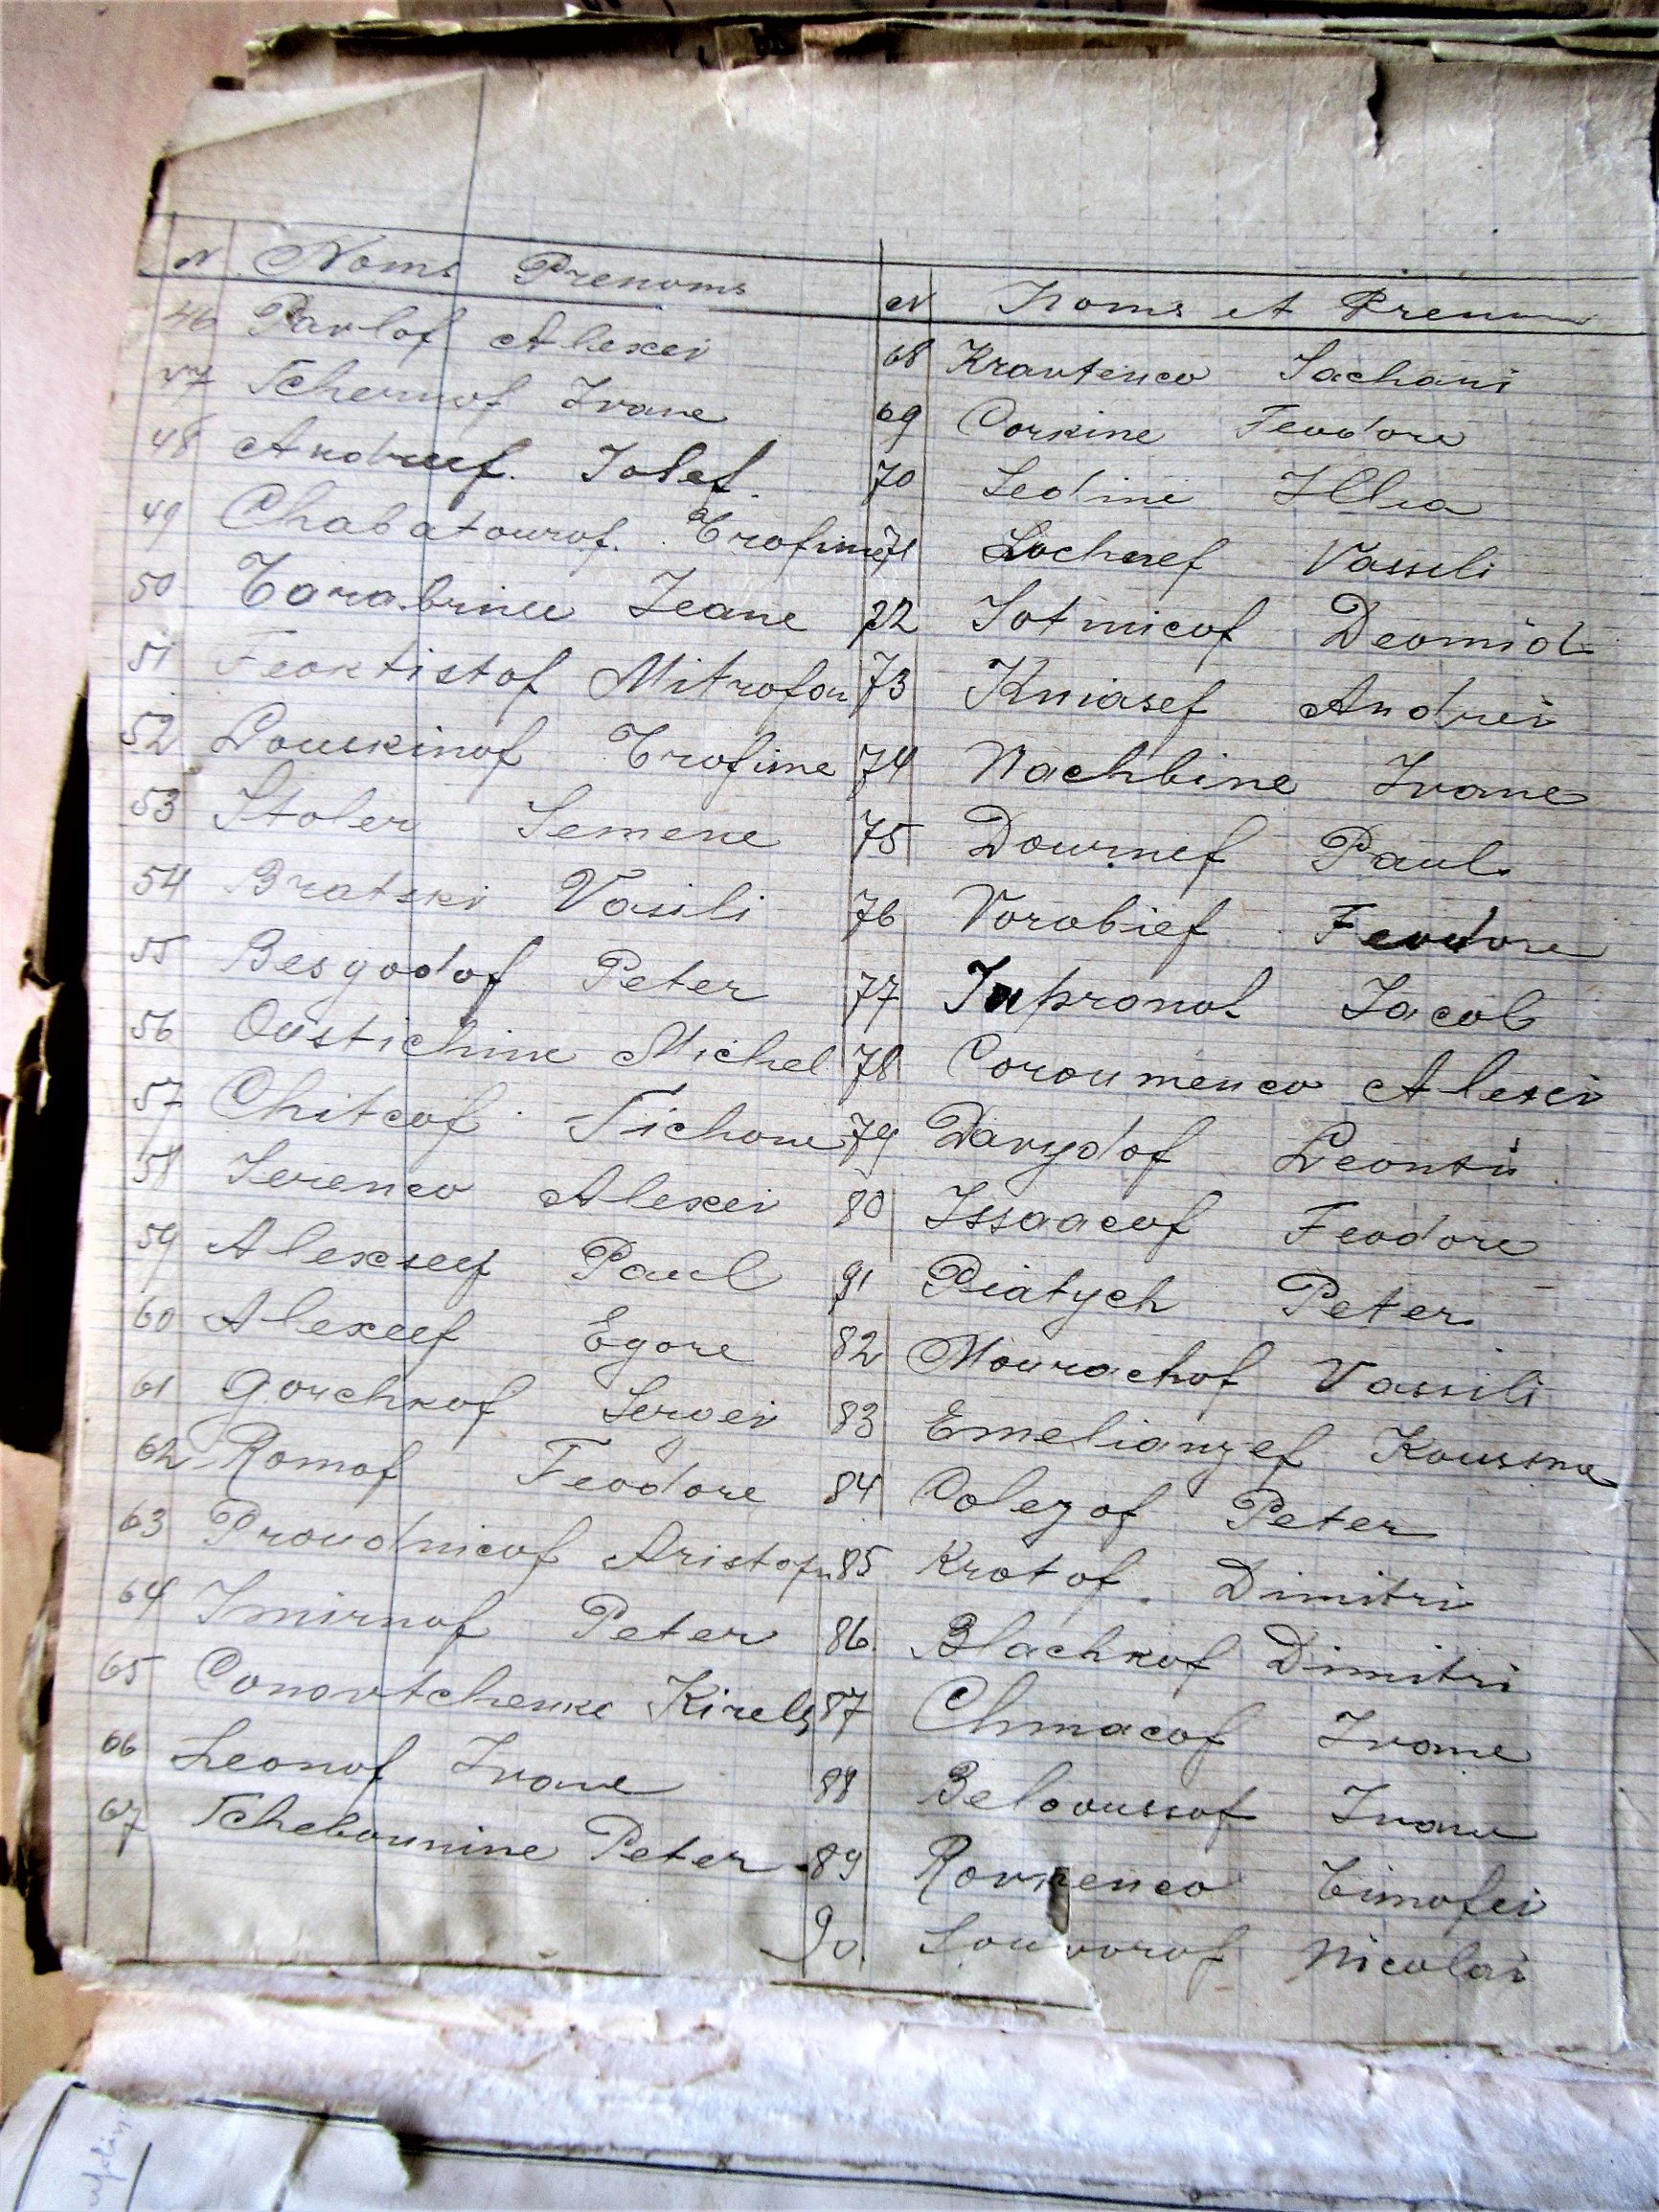 N Noms Prenoms
46 Pavlof Alexei
47 Tchernof Ivane
48 Andreef. Josef.
49 Chabatourof. Trofime
50 Tarabrine Jeane
51 Feoktistof Mitrofan
52 Louskinof Trofime
53 Stoler Semene
54 Bratski Vasili
55 Besgodof Peter
56 Oustichine Michel
57 Chitcof Tichone
58 Serenco Alexei
59 Alexseef Paul
60 Alexeef Egore
61 Gorchkof Sergei
62 Romof Feodore
63 Proudnicof Aristofn
64 Smirnof Peter
65 Conovtchenke Kirely
66 Leonof Ivane
67 Tchebounine Peter
N Noms et Prenom
68 Kravtenco Sachari
69 Corkine Feodore
70 Ledini Illia
71 Vassili
72 Sotnicof Deomid
73 Kniasef Andrei
74 Nachbine Ivane
75 Dournef Paul.
76 Vorobief Feodore
77 Jacob
78 Coroumenco Alexei
79 Davydof Leonti
80 Issaacof Feodore
91 Piatych Peter
82 Mourachof Vassili
83 Emelianzef Kousma
84 Colezof Peter
85 Krotof. Dimitri
86. Blachkof Dimitri
87 Chmacof Ivane
88 Belooussof Ivane
89 Rovkenco Timofei
90. Souvorof Nicolai